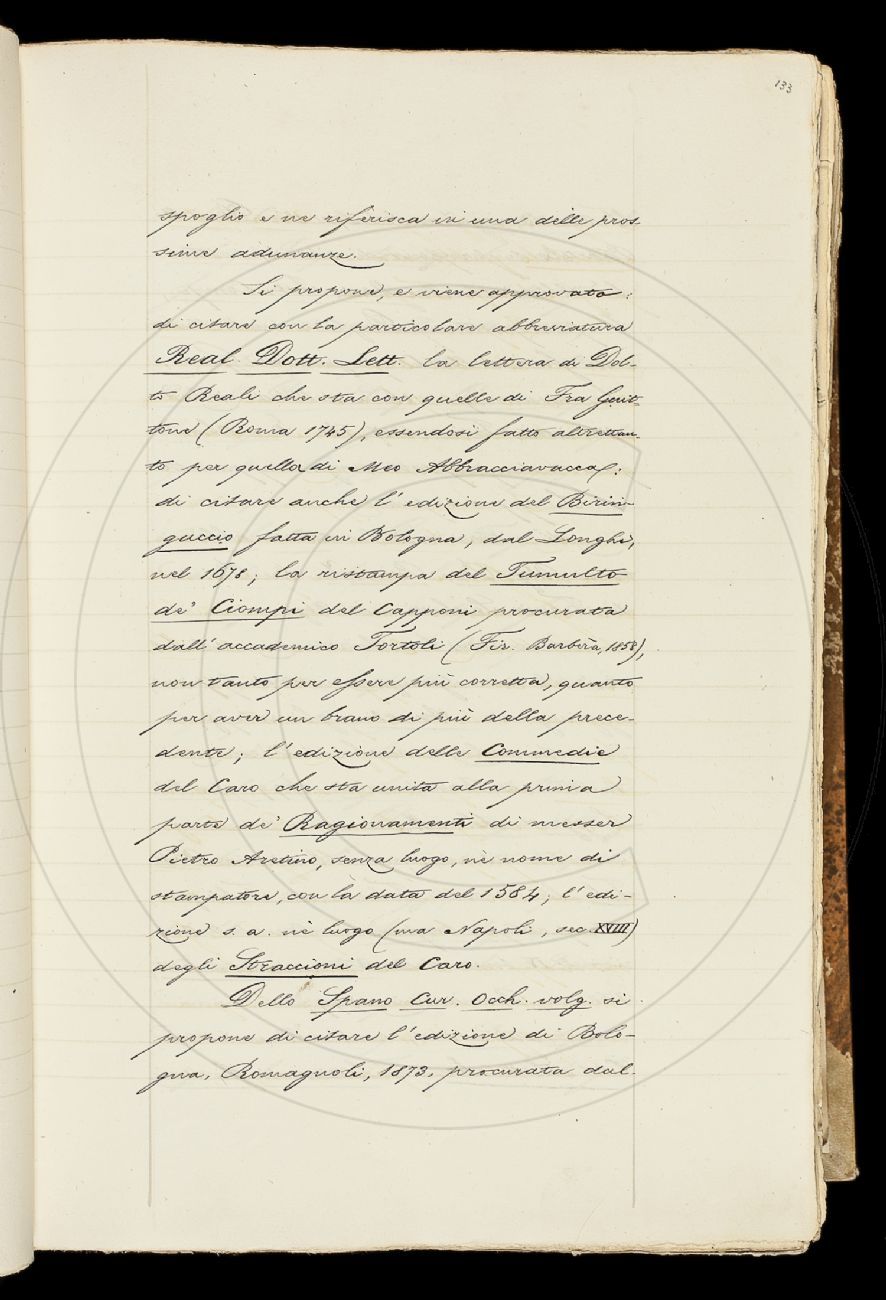 133
spoglio e ne riferisca in una delle pros
sime adunanze.
Si propone, e viene approvato:
di citare con la particolare abbreviatura
Real. Dott. Lett. la lettera di Dot-
to Reali che sta con quelle di Fra Guit-
tone (Roma 1745), essendosi fatto altrettan-
to per quella di Meo Abbracciavacca:
di citare anche l'edizione del Birin-
guccio fatta in Bologna, dal Longhi,
nel 1678; la ristampa del Tumulto
de' Ciompi del Capponi procurata
dall'accademico Tortoli (Fir. Barbèra, 1858),
non tanto per essere più corretta, quanto
per aver un brano di più della prece-
dente; l'edizione delle Commedie
del Caro che sta unita alla prima
parte de' Ragionamenti di messer
Pietro Aretino, senza luogo, nè nome di
stampatore, con la data del 1584; l'edi-
zione s. a. nè luogo (ma Napoli, sec. XVIII)
degli Straccioni del Caro.
Dello Spano Cur. Occh. volg. si
propone di citare l'edizione di Bolo-
gna, Romagnoli, 1873, procurata dal-